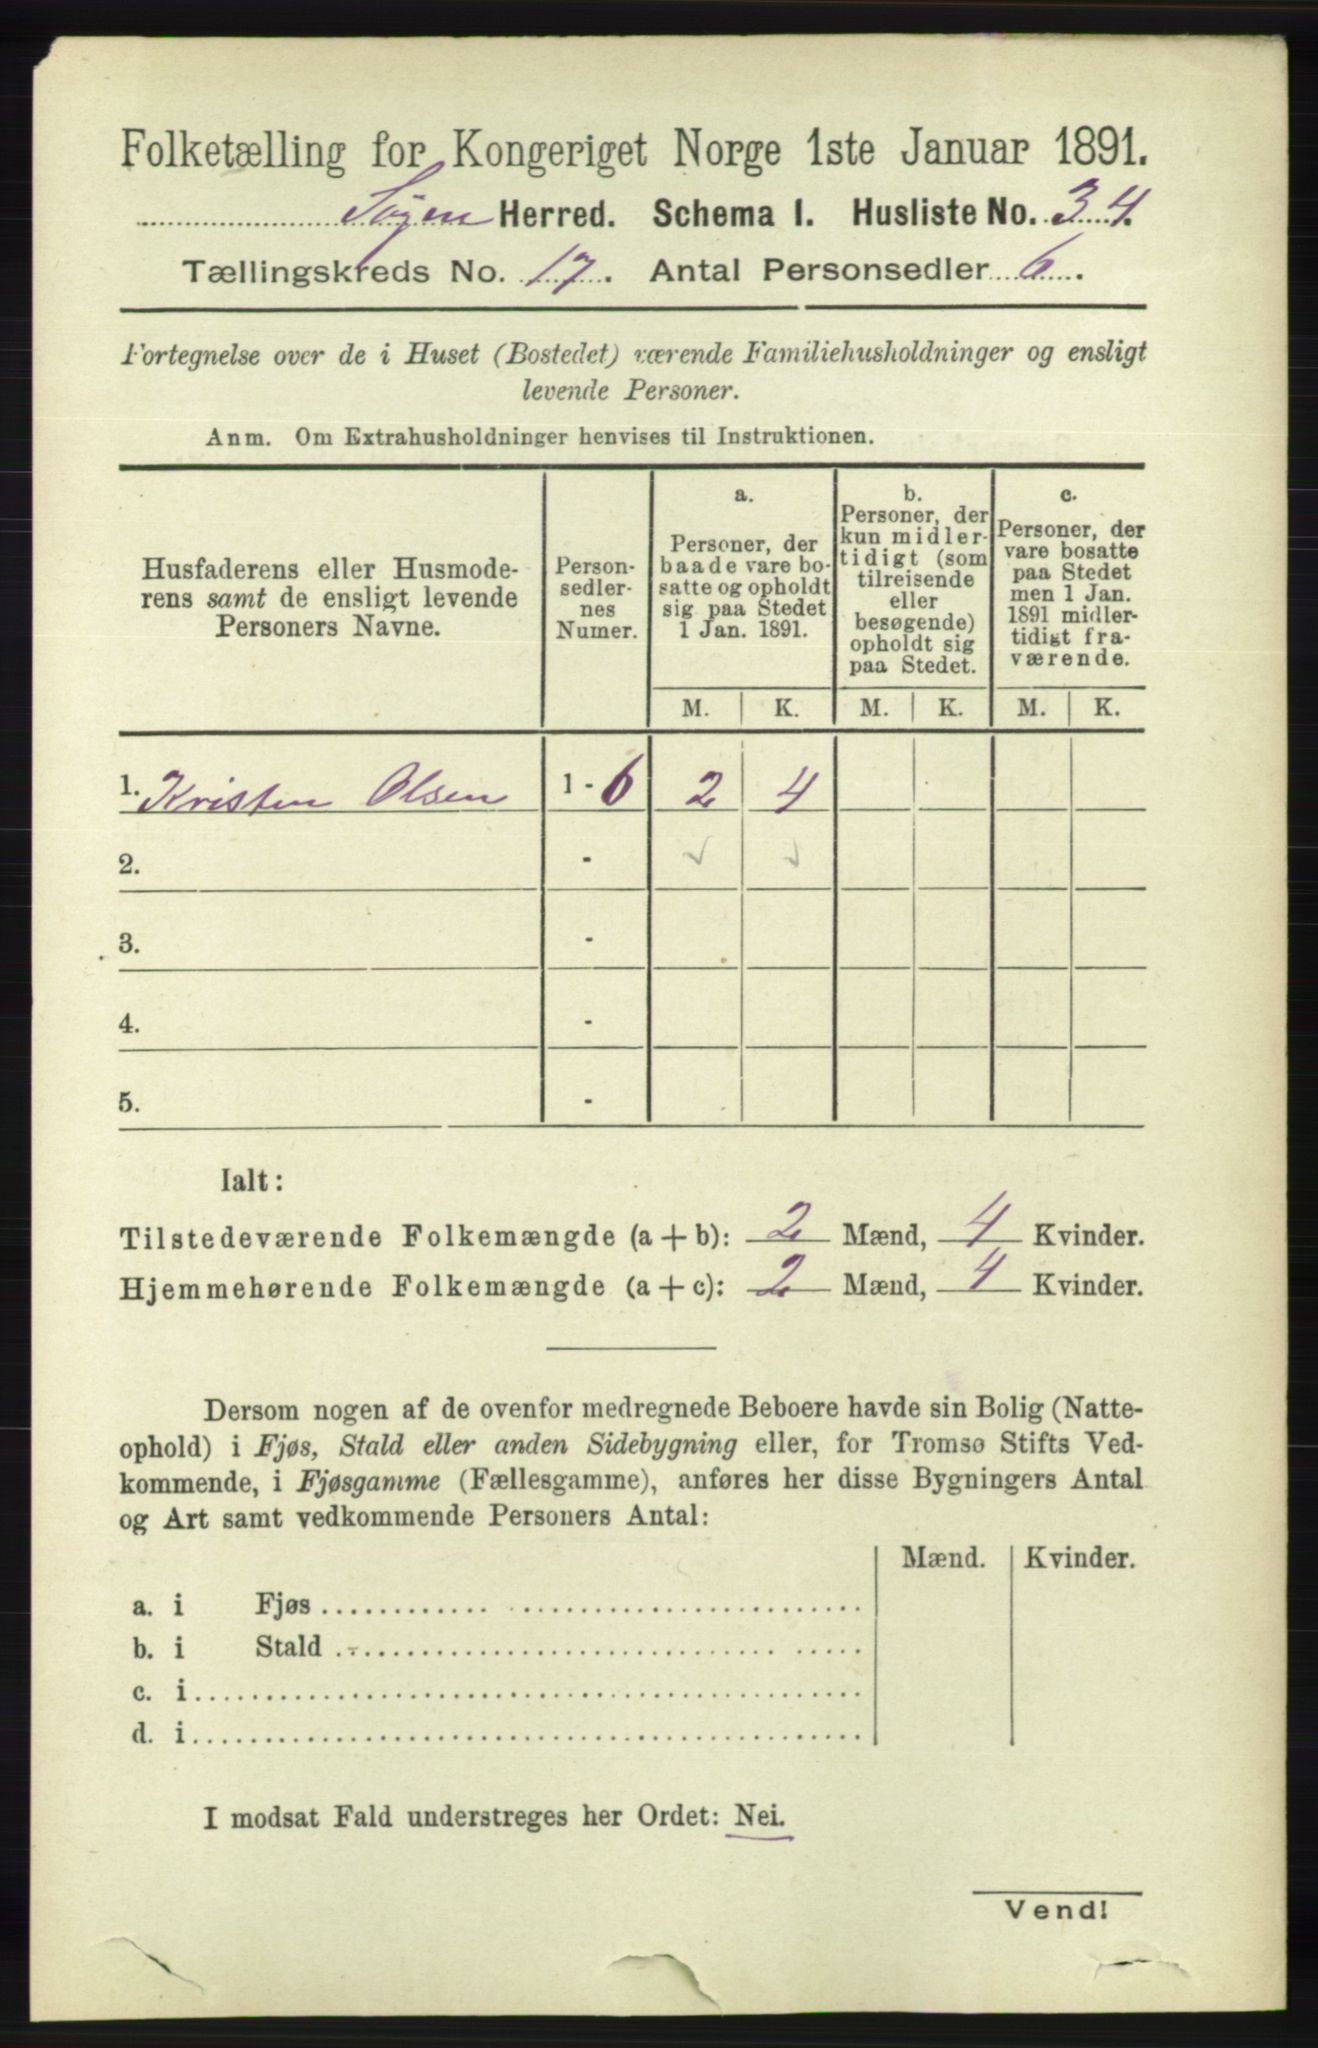 Folketælling for Kongeriget Norge 1ste Januar 1891.
Søgne Herred. Schema I. Husliste No. 34.
Tællingskreds No. 17. Antal Personsedler 6.
Fortegnelse over de i Huset (Bostedet) værende Familiehusholdninger og ensligt
levende Personer.
Anm. Om Extrahusholdninger henvises til Instruktionen.
Husfaderens eller Husmode-
rens samt de ensligt levende
Personers Navne.
Person-
sedler-
nes
Numer.
a.
Personer, der
baade vare bo-
satte og opholdt
sig paa Stedet
1 Jan. 1891.
b.
Personer, der
kun midler-
tidigt (som
tilreisende
eller
besøgende)
opholdt sig
paa Stedet.
c.
Personer, der
vare bosatte
paa Stedet
men 1 Jan.
1891 midler-
tidigt fra-
værende.
M. K. M. K. M. K.
1. Kristen Olsen 1 - 6 2 4
2. -
3. -
4. -
5. -
Ialt:
Tilstedeværende Folkemængde (a + b): 2 Mænd, 4 Kvinder.
Hjemmehørende Folkemængde (a + c): 2 Mænd, 4 Kvinder.
Dersom nogen af de ovenfor medregnede Beboere havde sin Bolig (Natte-
ophold) i Fjøs, Stald eller anden Sidebygning eller, for Tromsø Stifts Ved-
kommende, i Fjøsgamme (Fællesgamme), anføres her disse Bygningers Antal
og Art samt vedkommende Personers Antal:
Mænd. Kvinder.
a. i Fjøs
b. i Stald
c. i
d. i
I modsat Fald understreges her Ordet: Nei.
Vend!